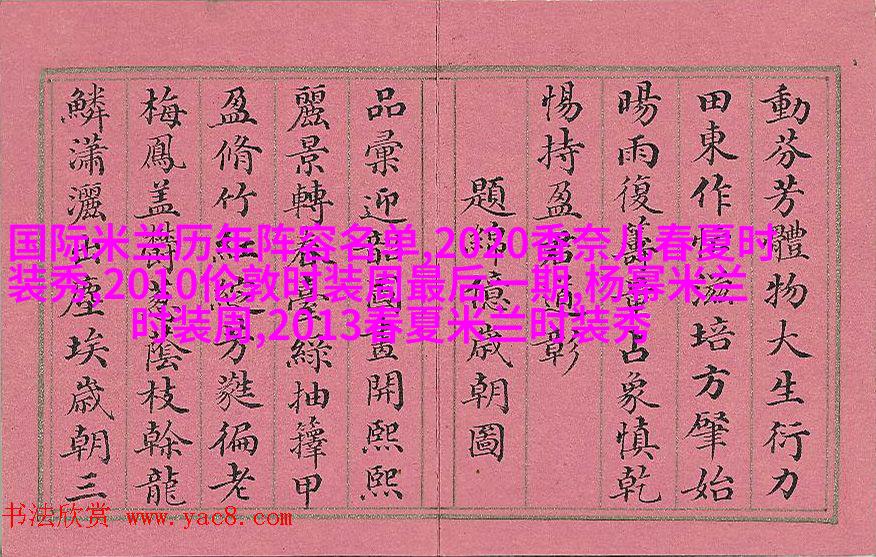 動芬芳體物大生衍力
田東作滋培方肇始
暘雨復占象慎乾
惕持盈通彰
題億歲朝圖
品彙迎韶圖畫開熙熙
麗景轉春臺綠抽籜甲
盈脩竹紅綻芳蕤徧老
梅鳳蓋陰枝榦龍
鱗瀟灑出塵埃歲朝三
国际米兰历年阵容名单,2020香奈儿春夏时
装秀,2010伦敦时装周最后一期,杨幂米兰
时装周,2013春夏米兰时装秀
书法欣赏 www.yac8.com